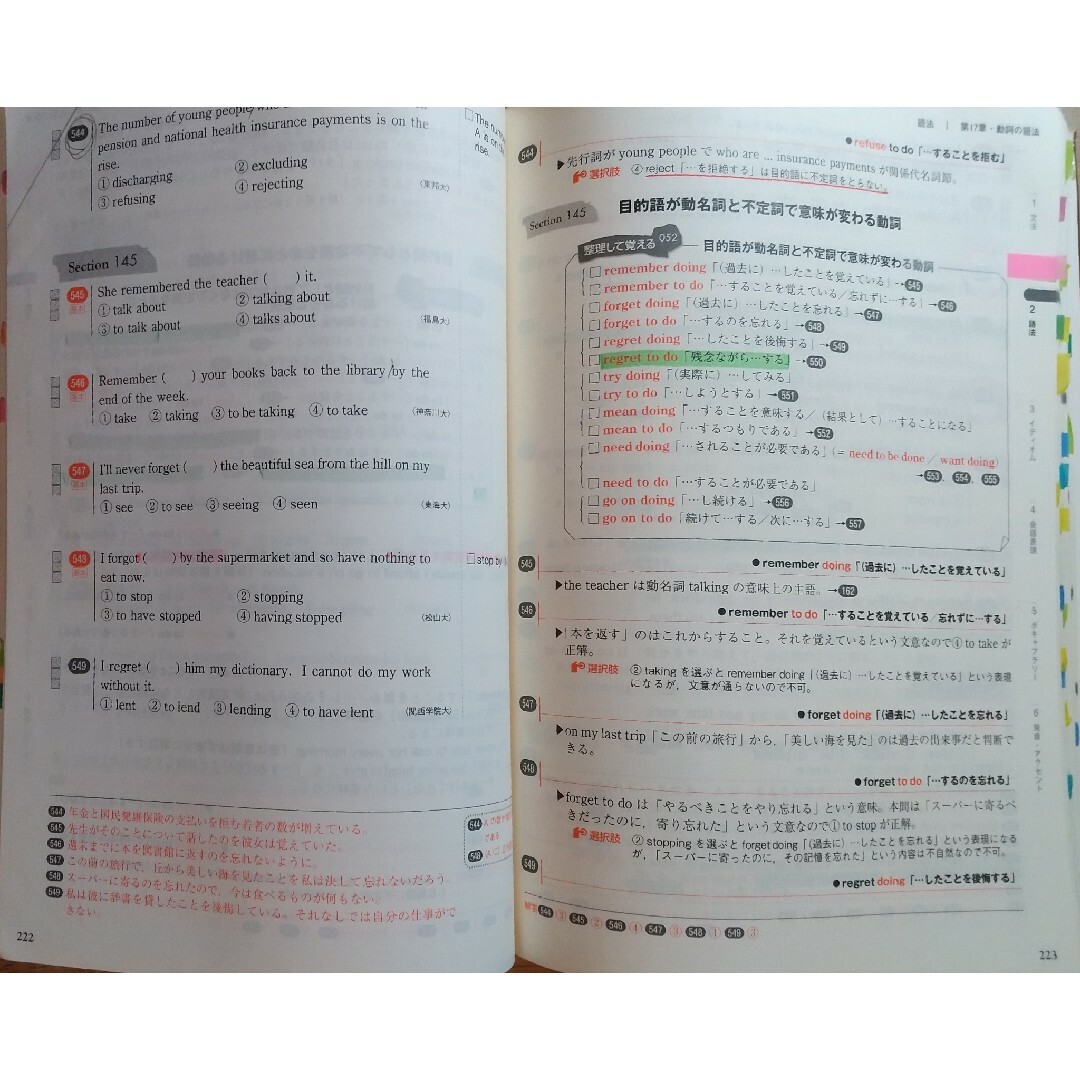 544 The number of young people who
pension and national health insurance payments is on the
rise.
① discharging ② excluding
③ refusing ④ rejecting (東邦大)
□The num
A is on
rise.
Section 145
545 She remembered the teacher ( ) it.
① talk about ② talking about
③ to talk about ④ talks about (福島大)
546 Remember ( ) your books back to the library by the
end of the week.
① take ② taking ③ to be taking ④ to take (神奈川大)
547 I'll never forget ( ) the beautiful sea from the hill on my
last trip.
① see ② to see ③ seeing ④ seen (東海大)
548 I forgot ( ) by the supermarket and so have nothing to
eat now.
① to stop ② stopping
③ to have stopped ④ having stopped (松山大)
□stop by
549 I regret ( ) him my dictionary. I cannot do my work
without it.
① lent ② to lend ③ lending ④ to have lent (関西学院大)
544 年金と国民健康保険の支払いを拒む若者の数が増えている。
545 先生がそのことについて話したのを彼女は覚えていた。
546 週末までに本を図書館に返すのを忘れないように。
547 この前の旅行で，丘から美しい海を見たことを私は決して忘れないだろう。
548 スーパーに寄るのを忘れたので，今は食べるものが何もない。
549 私は彼に辞書を貸したことを後悔している。それなしでは自分の仕事がで
きない。
222
語法 | 第17章・動詞の語法
544 ●refuse to do「…することを拒む」
▶先行詞が young people で who are ... insurance payments が関係代名詞節。
選択肢 ④ reject「…を拒絶する」は目的語に不定詞をとらない。
Section 145 目的語が動名詞と不定詞で意味が変わる動詞
整理して覚える 052 目的語が動名詞と不定詞で意味が変わる動詞
□ remember doing「(過去に) …したことを覚えている」→545
□ remember to do「…することを覚えている/忘れずに…する」→546
□ forget doing「(過去に) …したことを忘れる」→547
□ forget to do「…するのを忘れる」→548
□ regret doing「…したことを後悔する」→549
□ regret to do「残念ながら…する」→550
□ try doing「(実際に) …してみる」
□ try to do「…しようとする」→551
□ mean doing「…することを意味する/(結果として) …することになる」
□ mean to do「…するつもりである」→552
□ need doing「…されることが必要である」(= need to be done / want doing)
→553, 554, 555
□ need to do「…することが必要である」
□ go on doing「…し続ける」→556
□ go on to do「続けて…する/次に…する」→557
545 ●remember doing「(過去に) …したことを覚えている」
▶the teacher は動名詞 talking の意味上の主語。→162
546 ●remember to do「…することを覚えている/忘れずに…する」
▶「本を返す」のはこれからすること。それを覚えているという文意なので④ to take が
正解。
選択肢 ② taking を選ぶと remember doing「(過去に) …したことを覚えている」という表現
になるが，文意が通らないので不可。
547 ●forget doing「(過去に) …したことを忘れる」
▶on my last trip「この前の旅行」から，「美しい海を見た」のは過去の出来事だと判断で
きる。
548 ●forget to do「…するのを忘れる」
▶forget to do は「やるべきことをやり忘れる」という意味。本問は「スーパーに寄るべ
きだったのに，寄り忘れた」という文意なので① to stop が正解。
選択肢 ② stopping を選ぶと forget doing「(過去に) …したことを忘れる」という表現になる
が，「スーパーに寄ったのに，その記憶を忘れた」という内容は不自然なので不可。
549 ●regret doing「…したことを後悔する」
解答 544 ③ 545 ② 546 ④ 547 ③ 548 ① 549 ③
223
1 文法
2 語法
3 イディオム
4 会話表現
5 ボキャブラリー
6 発音・アクセント